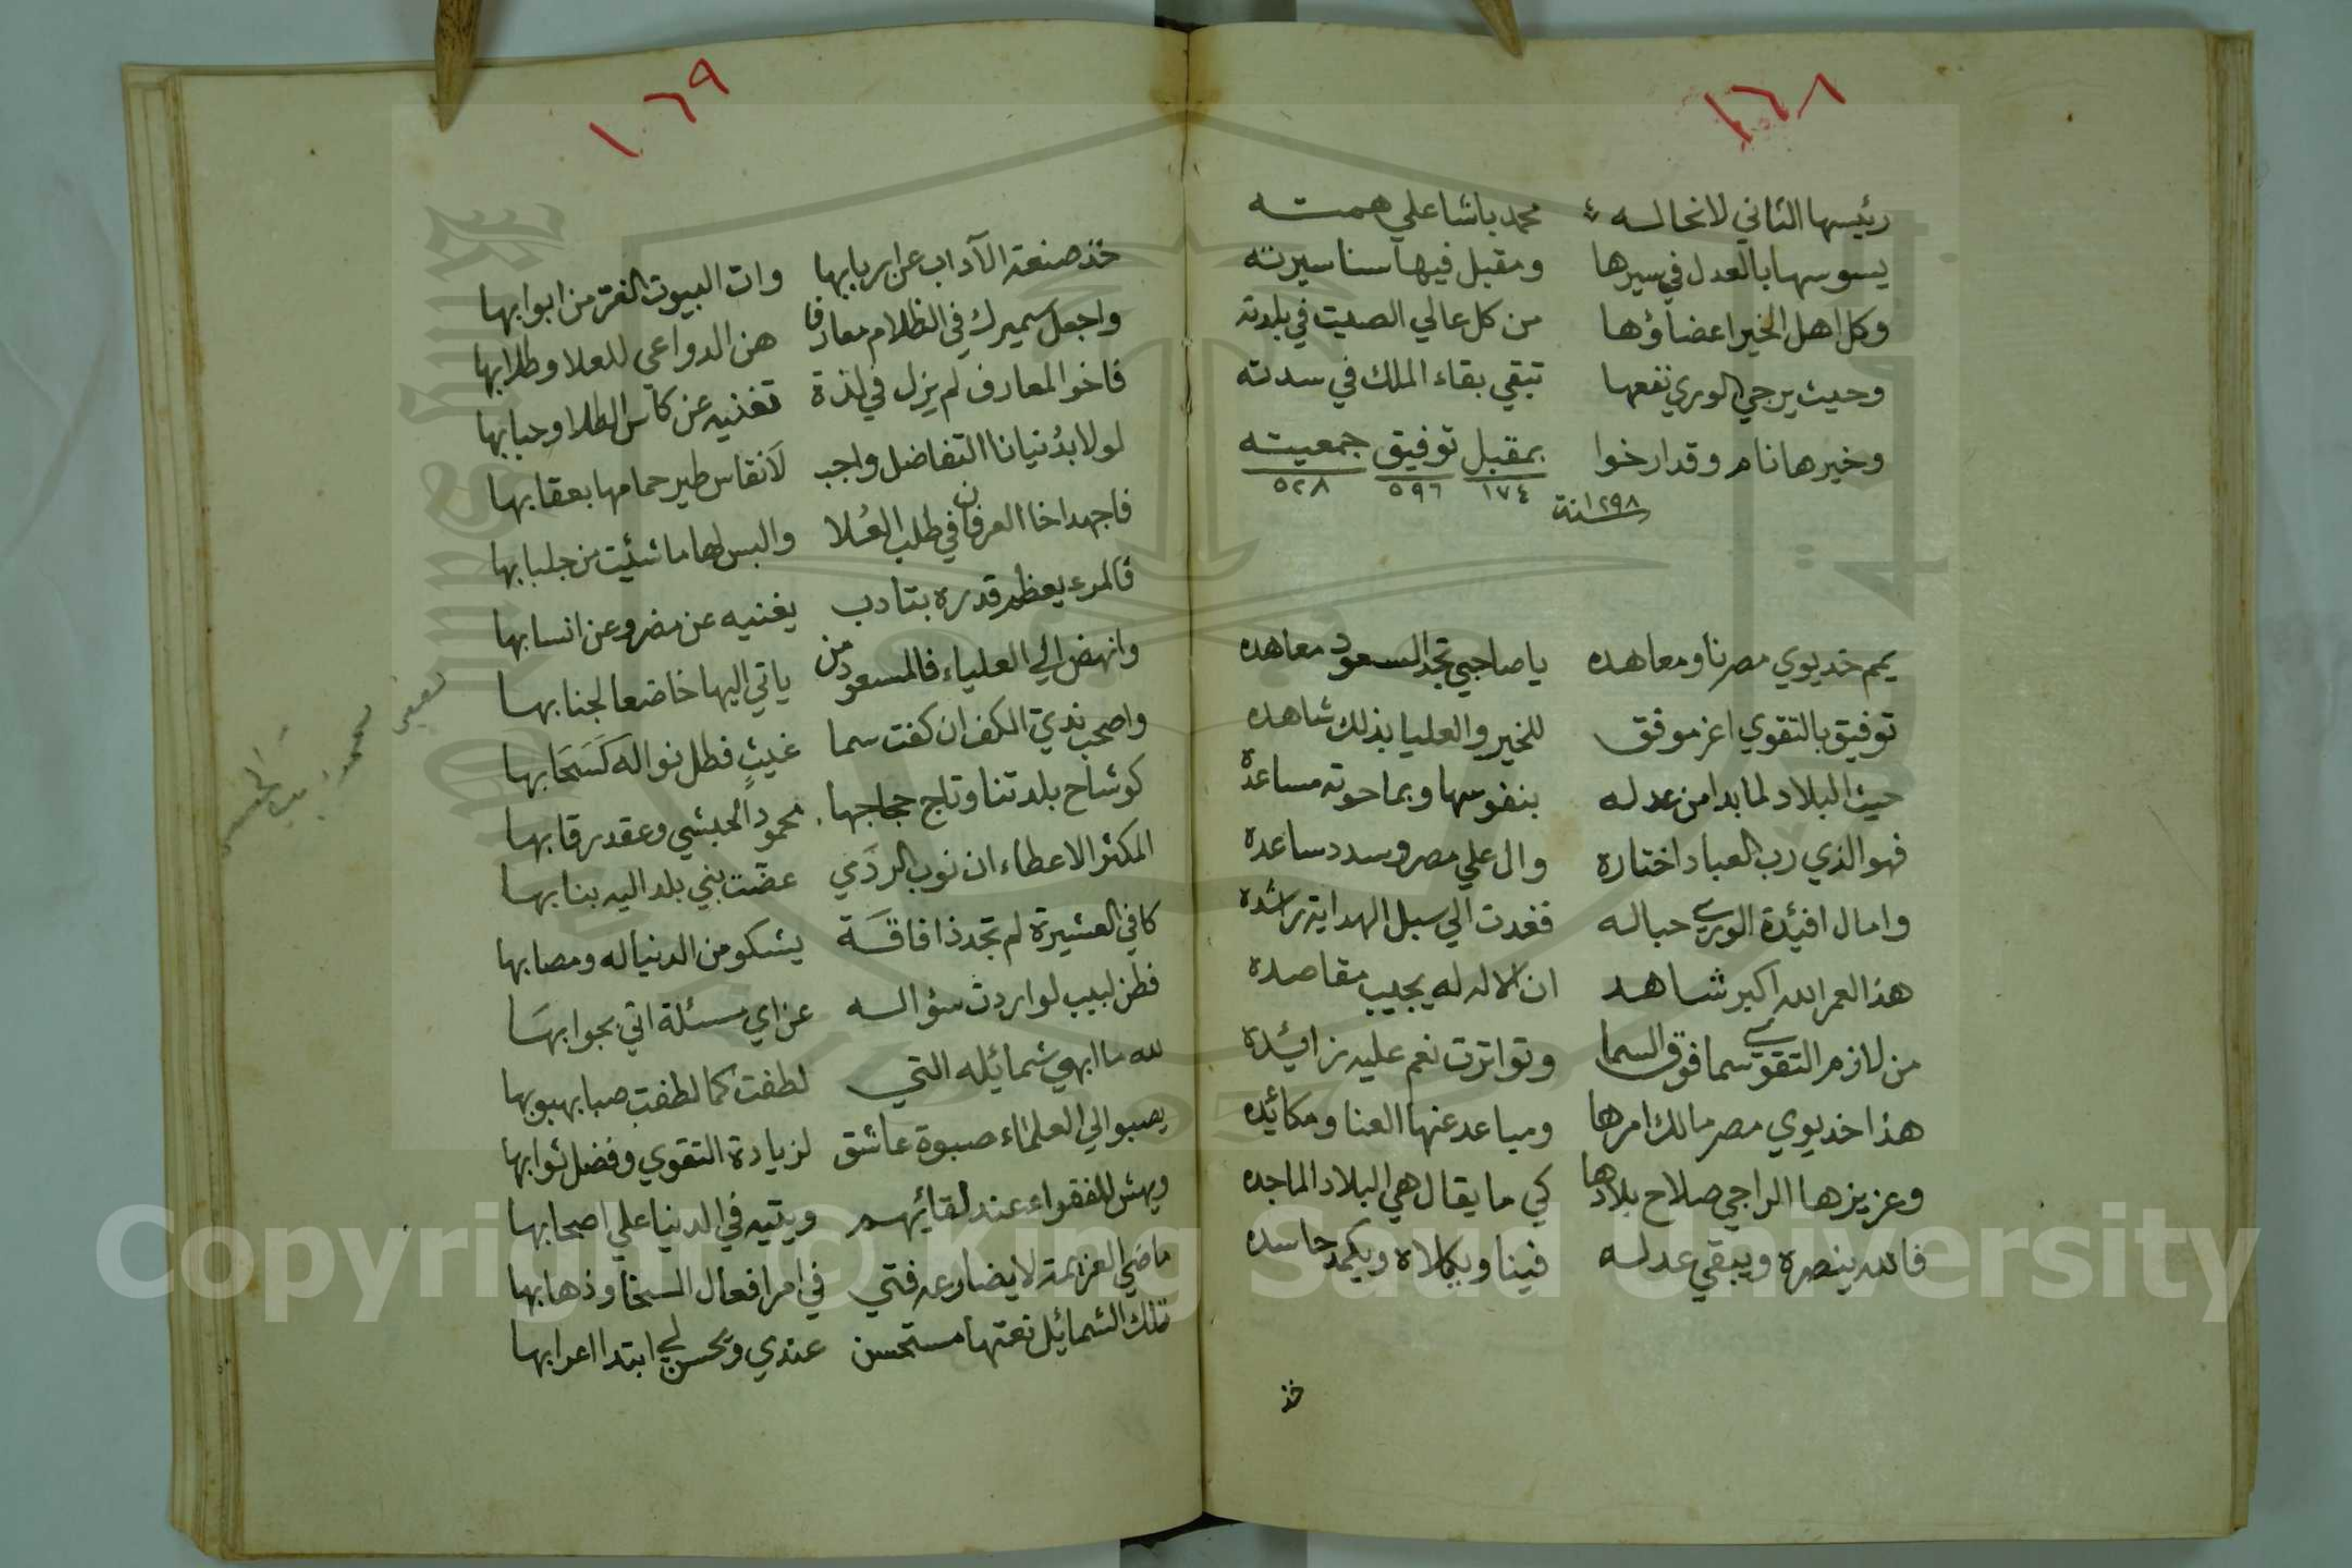 ١٦٨
رئيسها الثاني لانحاله محمد باشا علي همته
يسوسها بالعدل في سيرها ومقبل فيها سنا سيرته
وكل اهل الخير اعضاؤها من كل عالي الصيت في بلدته
وحيث يرجي الوري نفعها تبقي بقاء الملك في سدته
وخيرها نام وقد ارخوا بمقبل توفيق جمعيته
١٧٤ ٥٩٦ ٥٢٨
سنة ١٢٩٨
يمم خديوي مصرنا ومعاهده ياصاحبي تجد السعود معاهده
توفيق بالتقوي اعز موفق للخير والعليا بذلك شاهده
حيث البلاد لما بدا من عدله بنفوسها وبما حوته مساعدة
فهو الذي رب العباد اختاره وال علي مصر وسدد ساعده
وامال افيئدة الوري حباله فغدت الي سبل الهداية راشده
هذا لعمر الله اكبر شاهد ان الاله له يجيب مقاصده
من لازم التقوي سما فوق السما وتواترت نعم عليه زائيده
هذا خديوي مصر مالك امرها ومباعد عنها العنا ومكائده
وعزيزها الراجي صلاح بلادها كي ما يقال هي البلاد الماجده
فالله ينصره ويبقي عدله فينا ويكلاه ويكمد حاسده
خذ
١٦٩
خذ صنعة الآداب عن اربابها وات البيوت الغر من ابوابها
واجعل سميرك في الظلام معارفا هن الدواعي للعلا وطلابها
فاخو المعارف لم يزل في لذة تغنيه عن كاس الطلا وحبابها
لولا بدنيانا التفاضل واجب لانقاس طير حمامها بعقابها
فاجهد اخا العرفان في طلب العلا والبس لها ما شئيت من جلبابها
فالمرء يعظم قدره بتادب يغنيه عن مضر وعن انسابها
وانهض الي العلياء فالمسعود من ياتي اليها خاضعا لجنابها
واصحب ندي الكف ان كفت سما غيث فطل نواله كسحابها
كوشاح بلدتنا وتاج حجاجها محمود الحبشي وعقد رقابها
المكثر الاعطاء ان نوب الردي عضت بني بلد اليه بنابها
كافي العشيرة لم تجد ذا فاقة يشكو من الدنيا له ومصابها
فطن لبيب لو اردت سؤاله عن اي مسئلة اتي بجوابها
لله ما ابهي شمائيله التي لطفت كما لطفت صبا بهبوبها
يصبوا لي العلماء صبوة عاشق لزيادة التقوي وفضل ثوابها
ويهش للفقراء عند لقائيهم ويتيه في الدنيا علي اصحابها
ماضي العزيمة لا يضارعه فتي في امر افعال السخا وذهابها
تلك الشمائيل نعتها مستحسن عندي ويحسن لي ابتدا اعرابها
Copyright © King Saud University